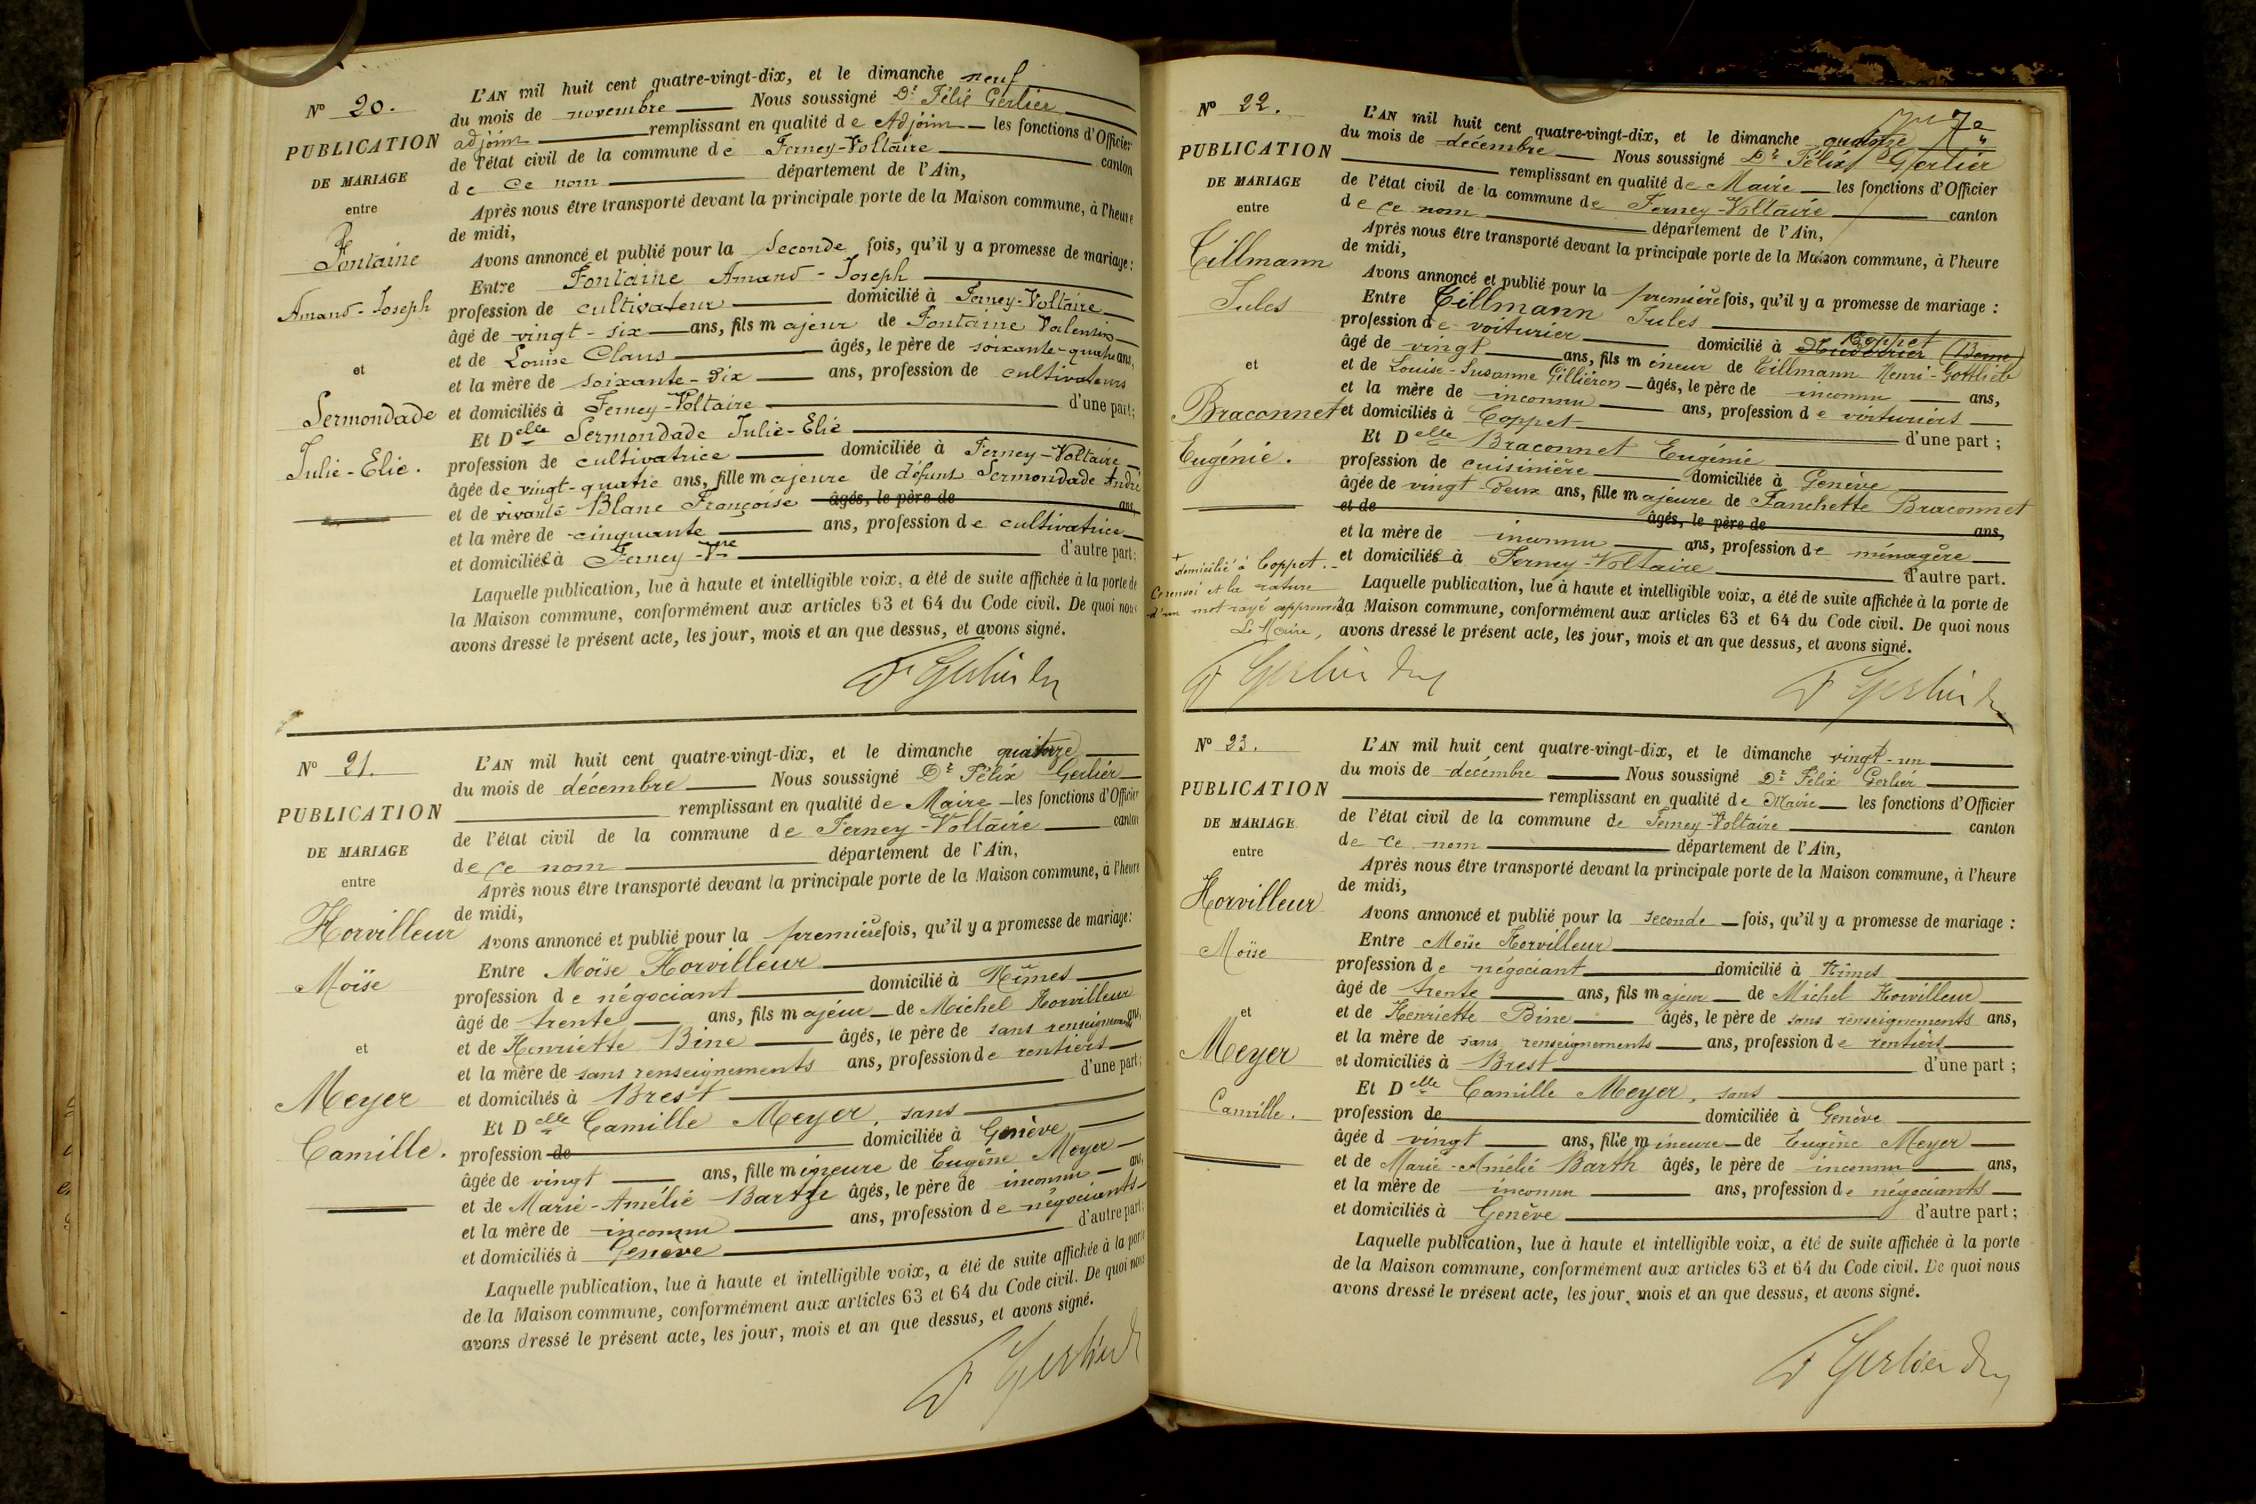 N° 20.
PUBLICATION
DE MARIAGE
entre
Fontaine
Amand-Joseph
et
Sermondade
Julie-Elie.
L'AN mil huit cent quatre-vingt-dix, et le dimanche neuf
du mois de novembre Nous soussigné Dr Félix Gerlier
adjoint remplissant en qualité de Adjoint les fonctions d'Officier
de l'état civil de la commune de Ferney-Voltaire canton
de ce nom département de l'Ain,
Après nous être transporté devant la principale porte de la Maison commune, à l'heure
de midi,
Avons annoncé et publié pour la seconde fois, qu'il y a promesse de mariage :
Entre Fontaine Amand-Joseph
profession de cultivateur domicilié à Ferney-Voltaire
âgé de vingt-six ans, fils majeur de Fontaine Valentin
et de Louise Claus âgés, le père de soixante-quatre ans,
et la mère de soixante-dix ans, profession de cultivateurs
et domiciliés à Ferney-Voltaire d'une part ;
Et Delle Sermondade Julie-Elie
profession de cultivatrice domiciliée à Ferney-Voltaire
âgée de vingt-quatre ans, fille majeure de défunt Sermondade André
et de vivante Blanc Françoise âgés, le père de ans,
et la mère de cinquante ans, profession de cultivatrice
et domiciliée à Ferney-Vre d'autre part ;
Laquelle publication, lue à haute et intelligible voix, a été de suite affichée à la porte de
la Maison commune, conformément aux articles 63 et 64 du Code civil. De quoi nous
avons dressé le présent acte, les jour, mois et an que dessus, et avons signé.
F Gerlier
N° 21.
PUBLICATION
DE MARIAGE
entre
Horvilleur
Moïse
et
Meyer
Camille.
L'AN mil huit cent quatre-vingt-dix, et le dimanche quatorze
du mois de décembre Nous soussigné Dr Félix Gerlier
remplissant en qualité de Maire les fonctions d'Officier
de l'état civil de la commune de Ferney-Voltaire canton
de ce nom département de l'Ain,
Après nous être transporté devant la principale porte de la Maison commune, à l'heure
de midi,
Avons annoncé et publié pour la première fois, qu'il y a promesse de mariage :
Entre Moïse Horvilleur
profession de négociant domicilié à Nîmes
âgé de trente ans, fils majeur de Michel Horvilleur
et de Henriette Bine âgés, le père de sans renseignements ans,
et la mère de sans renseignements ans, profession de rentiers
et domiciliés à Brest d'une part ;
Et Delle Camille Meyer, sans
profession de domiciliée à Genève
âgée de vingt ans, fille mineure de Eugène Meyer
et de Marie-Amélie Barth âgés, le père de inconnu ans,
et la mère de inconnu ans, profession de négociants
et domiciliés à Genève d'autre part ;
Laquelle publication, lue à haute et intelligible voix, a été de suite affichée à la porte
de la Maison commune, conformément aux articles 63 et 64 du Code civil. De quoi nous
avons dressé le présent acte, les jour, mois et an que dessus, et avons signé.
F Gerlier
N° 22.
PUBLICATION
DE MARIAGE
entre
Tillmann
Jules
et
Braconnet
Eugénie.
+ domicilié à Coppet.
Ce renvoi et la rature
d'un mot rayé approuvés
Le Maire,
F Gerlier
L'AN mil huit cent quatre-vingt-dix, et le dimanche quatorze
du mois de décembre Nous soussigné Dr Félix Gerlier
remplissant en qualité de Maire les fonctions d'Officier
de l'état civil de la commune de Ferney-Voltaire canton
de ce nom département de l'Ain,
Après nous être transporté devant la principale porte de la Maison commune, à l'heure
de midi,
Avons annoncé et publié pour la première fois, qu'il y a promesse de mariage :
Entre Tillmann Jules
profession de voiturier domicilié à Coppet (Berne)
âgé de vingt ans, fils mineur de Tillmann Henri-Gottlieb
et de Louise-Susanne Gilliéron âgés, le père de inconnu ans,
et la mère de inconnu ans, profession de voituriers
et domiciliés à Coppet d'une part ;
Et Delle Braconnet Eugénie
profession de cuisinière domiciliée à Genève
âgée de vingt-deux ans, fille majeure de Fanchette Braconnet
et de âgés, le père de ans,
et la mère de inconnu ans, profession de ménagère
et domiciliée à Ferney-Voltaire d'autre part.
Laquelle publication, lue à haute et intelligible voix, a été de suite affichée à la porte de
la Maison commune, conformément aux articles 63 et 64 du Code civil. De quoi nous
avons dressé le présent acte, les jour, mois et an que dessus, et avons signé.
F Gerlier
N° 23.
PUBLICATION
DE MARIAGE
entre
Horvilleur
Moïse
et
Meyer
Camille.
L'AN mil huit cent quatre-vingt-dix, et le dimanche vingt-un
du mois de décembre Nous soussigné Dr Félix Gerlier
remplissant en qualité de Maire les fonctions d'Officier
de l'état civil de la commune de Ferney-Voltaire canton
de ce nom département de l'Ain,
Après nous être transporté devant la principale porte de la Maison commune, à l'heure
de midi,
Avons annoncé et publié pour la seconde fois, qu'il y a promesse de mariage :
Entre Moïse Horvilleur
profession de négociant domicilié à Nîmes
âgé de trente ans, fils majeur de Michel Horvilleur
et de Henriette Bine âgés, le père de sans renseignements ans,
et la mère de sans renseignements ans, profession de rentiers
et domiciliés à Brest d'une part ;
Et Delle Camille Meyer, sans
profession de domiciliée à Genève
âgée d vingt ans, fille mineure de Eugène Meyer
et de Marie-Amélie Barth âgés, le père de inconnu ans,
et la mère de inconnu ans, profession de négociants
et domiciliés à Genève d'autre part ;
Laquelle publication, lue à haute et intelligible voix, a été de suite affichée à la porte
de la Maison commune, conformément aux articles 63 et 64 du Code civil. De quoi nous
avons dressé le présent acte, les jour, mois et an que dessus, et avons signé.
F Gerlier